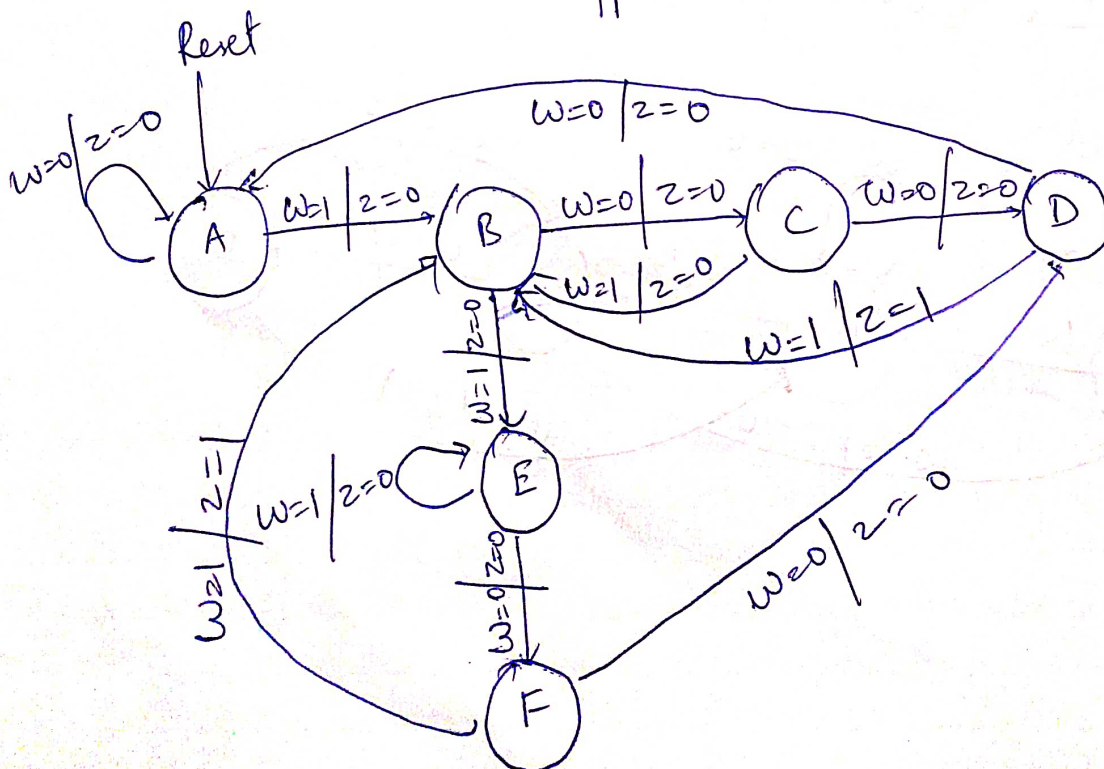 Reset
w=0 | z=0
w=0 | z=0
A
w=1 | z=0
B
w=0 | z=0
C
w=0 | z=0
D
w=1 | z=0
w=1 | z=1
w=1 | z=0
w=1 | z=1
w=1 | z=0
E
w=0 | z=0
w=0 | z=0
F